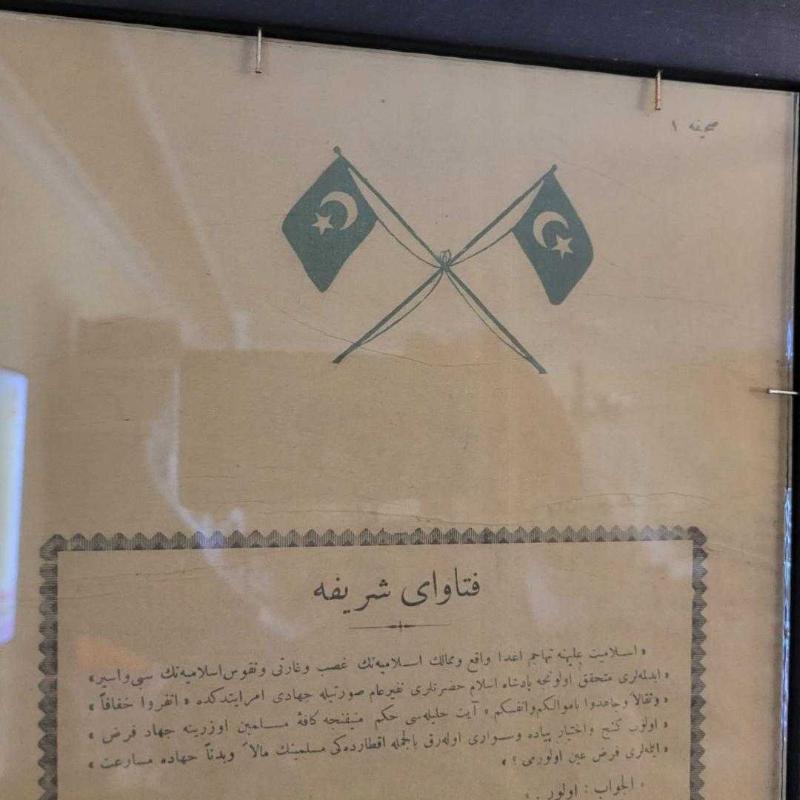 صحیفه ١
فتاوای شریفه
« اسلامیت علیهنه تهاجم اعدا واقع وممالك اسلامیه‌نك غصب وغارتی ونفوس اسلامیه‌نك سبی واسیر »
« ایدلمه‌لری متحقق اولونجه پادشاه اسلام حضرتلری نفیرعام صورتیله جهادی امرایتدکده « انفروا خفافاً »
« وثقالاً وجاهدوا باموالکم وانفسکم » آیت جلیله‌سی حکم منیفنجه کافهٔ مسلمین اوزرینه جهاد فرض »
« اولوب کنج واختیار پیاده وسواری اوله‌رق بالجمله اقطارده‌کی مسلمینك مالاً وبدناً جهاده مسارعت »
« ایتمه‌لری فرض عین اولورمی ؟ »
« الجواب : اولور . »